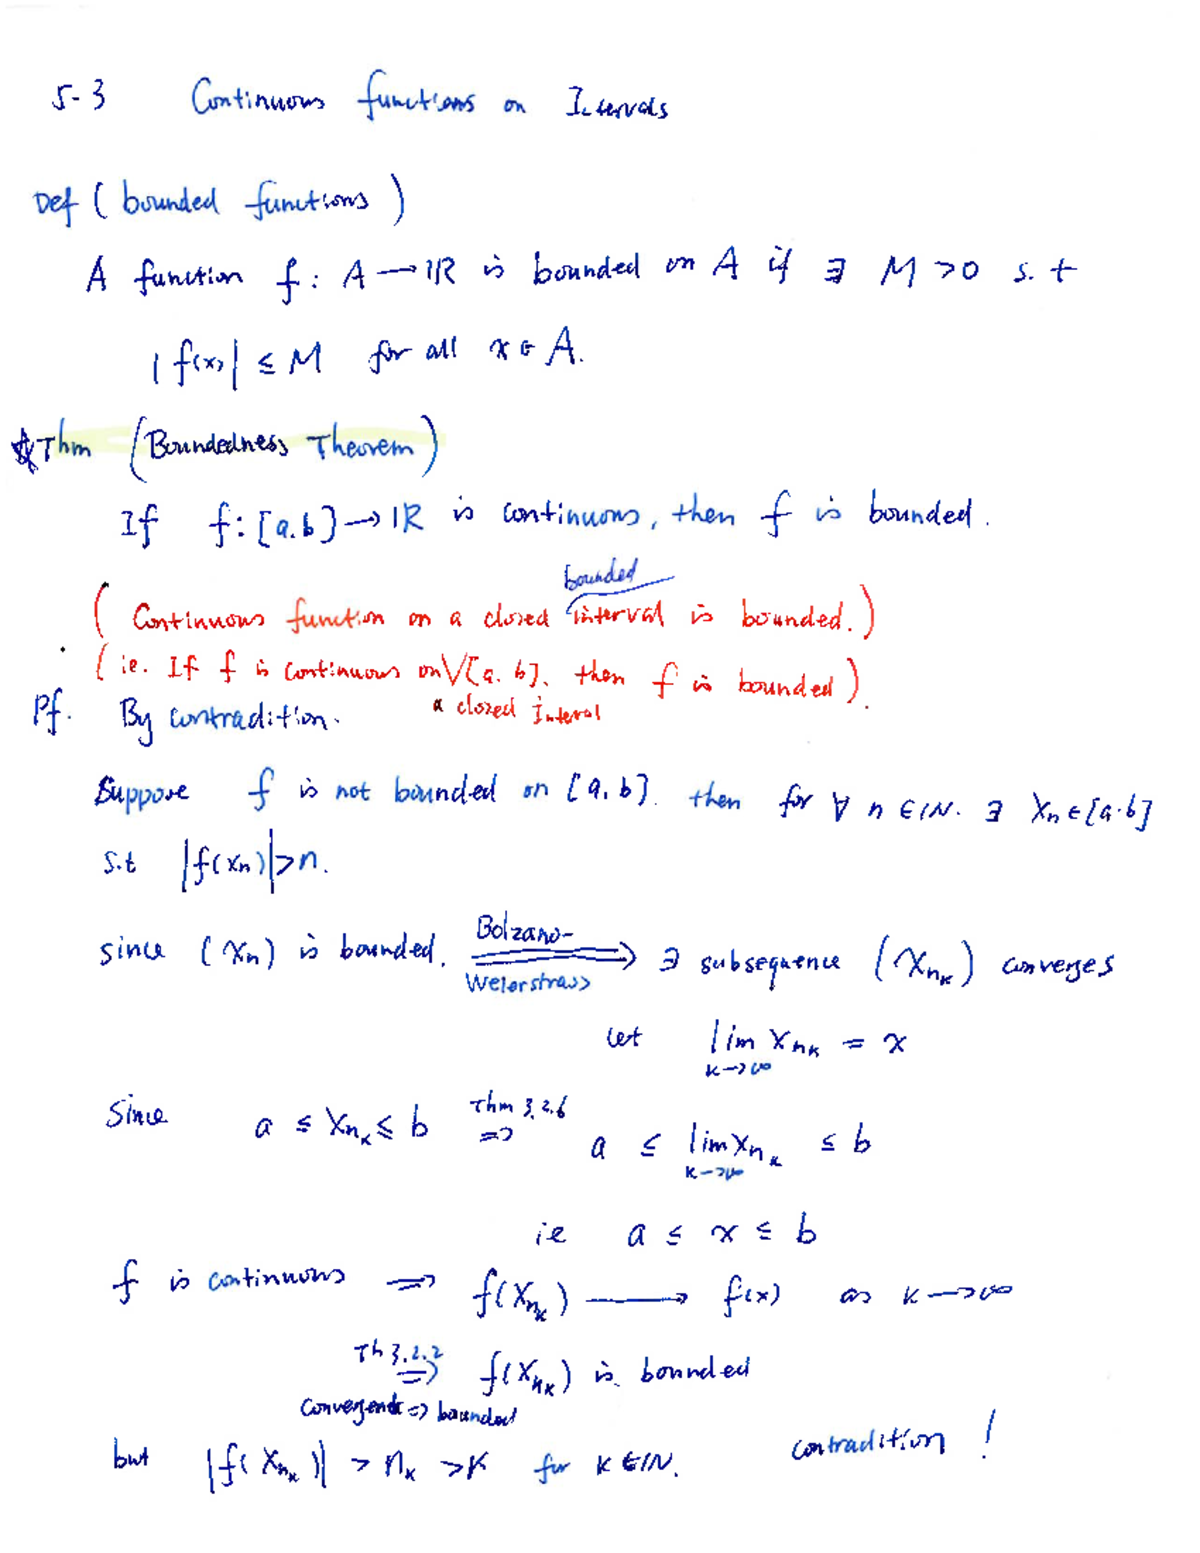 5-3 Continuous functions on Intervals
Def (bounded functions)
A function f: A → ℝ is bounded on A if ∃ M > 0 s.t
|f(x)| ≤ M for all x ∈ A.
☆Thm (Boundedness Theorem)
If f: [a.b] → ℝ is continuous, then f is bounded.
bounded
(Continuous function on a closed interval is bounded.)
(ie. If f is continuous on ∨[a. b]. then f is bounded).
a closed Interval
Pf. By contradition.
Suppose f is not bounded on [a, b]. then for ∀ n ∈ ℕ. ∃ Xn ∈ [a.b]
s.t |f(xn)| > n.
since (Xn) is bounded. Bolzano- Weierstrass ⟹ ∃ subsequence (X_{n_k}) converges
let lim_{k→∞} X_{n_k} = x
Since a ≤ X_{n_k} ≤ b Thm 3.2.6 ⇒ a ≤ lim_{k→∞} X_{n_k} ≤ b
ie a ≤ x ≤ b
f is continuous ⇒ f(X_{n_k}) ⟶ f(x) as k → ∞
Th 3.2.2 ⇒ f(X_{n_k}) is bounded
convergent ⇒ bounded
but |f(X_{n_k})| > n_k > k for k ∈ ℕ. contradition!